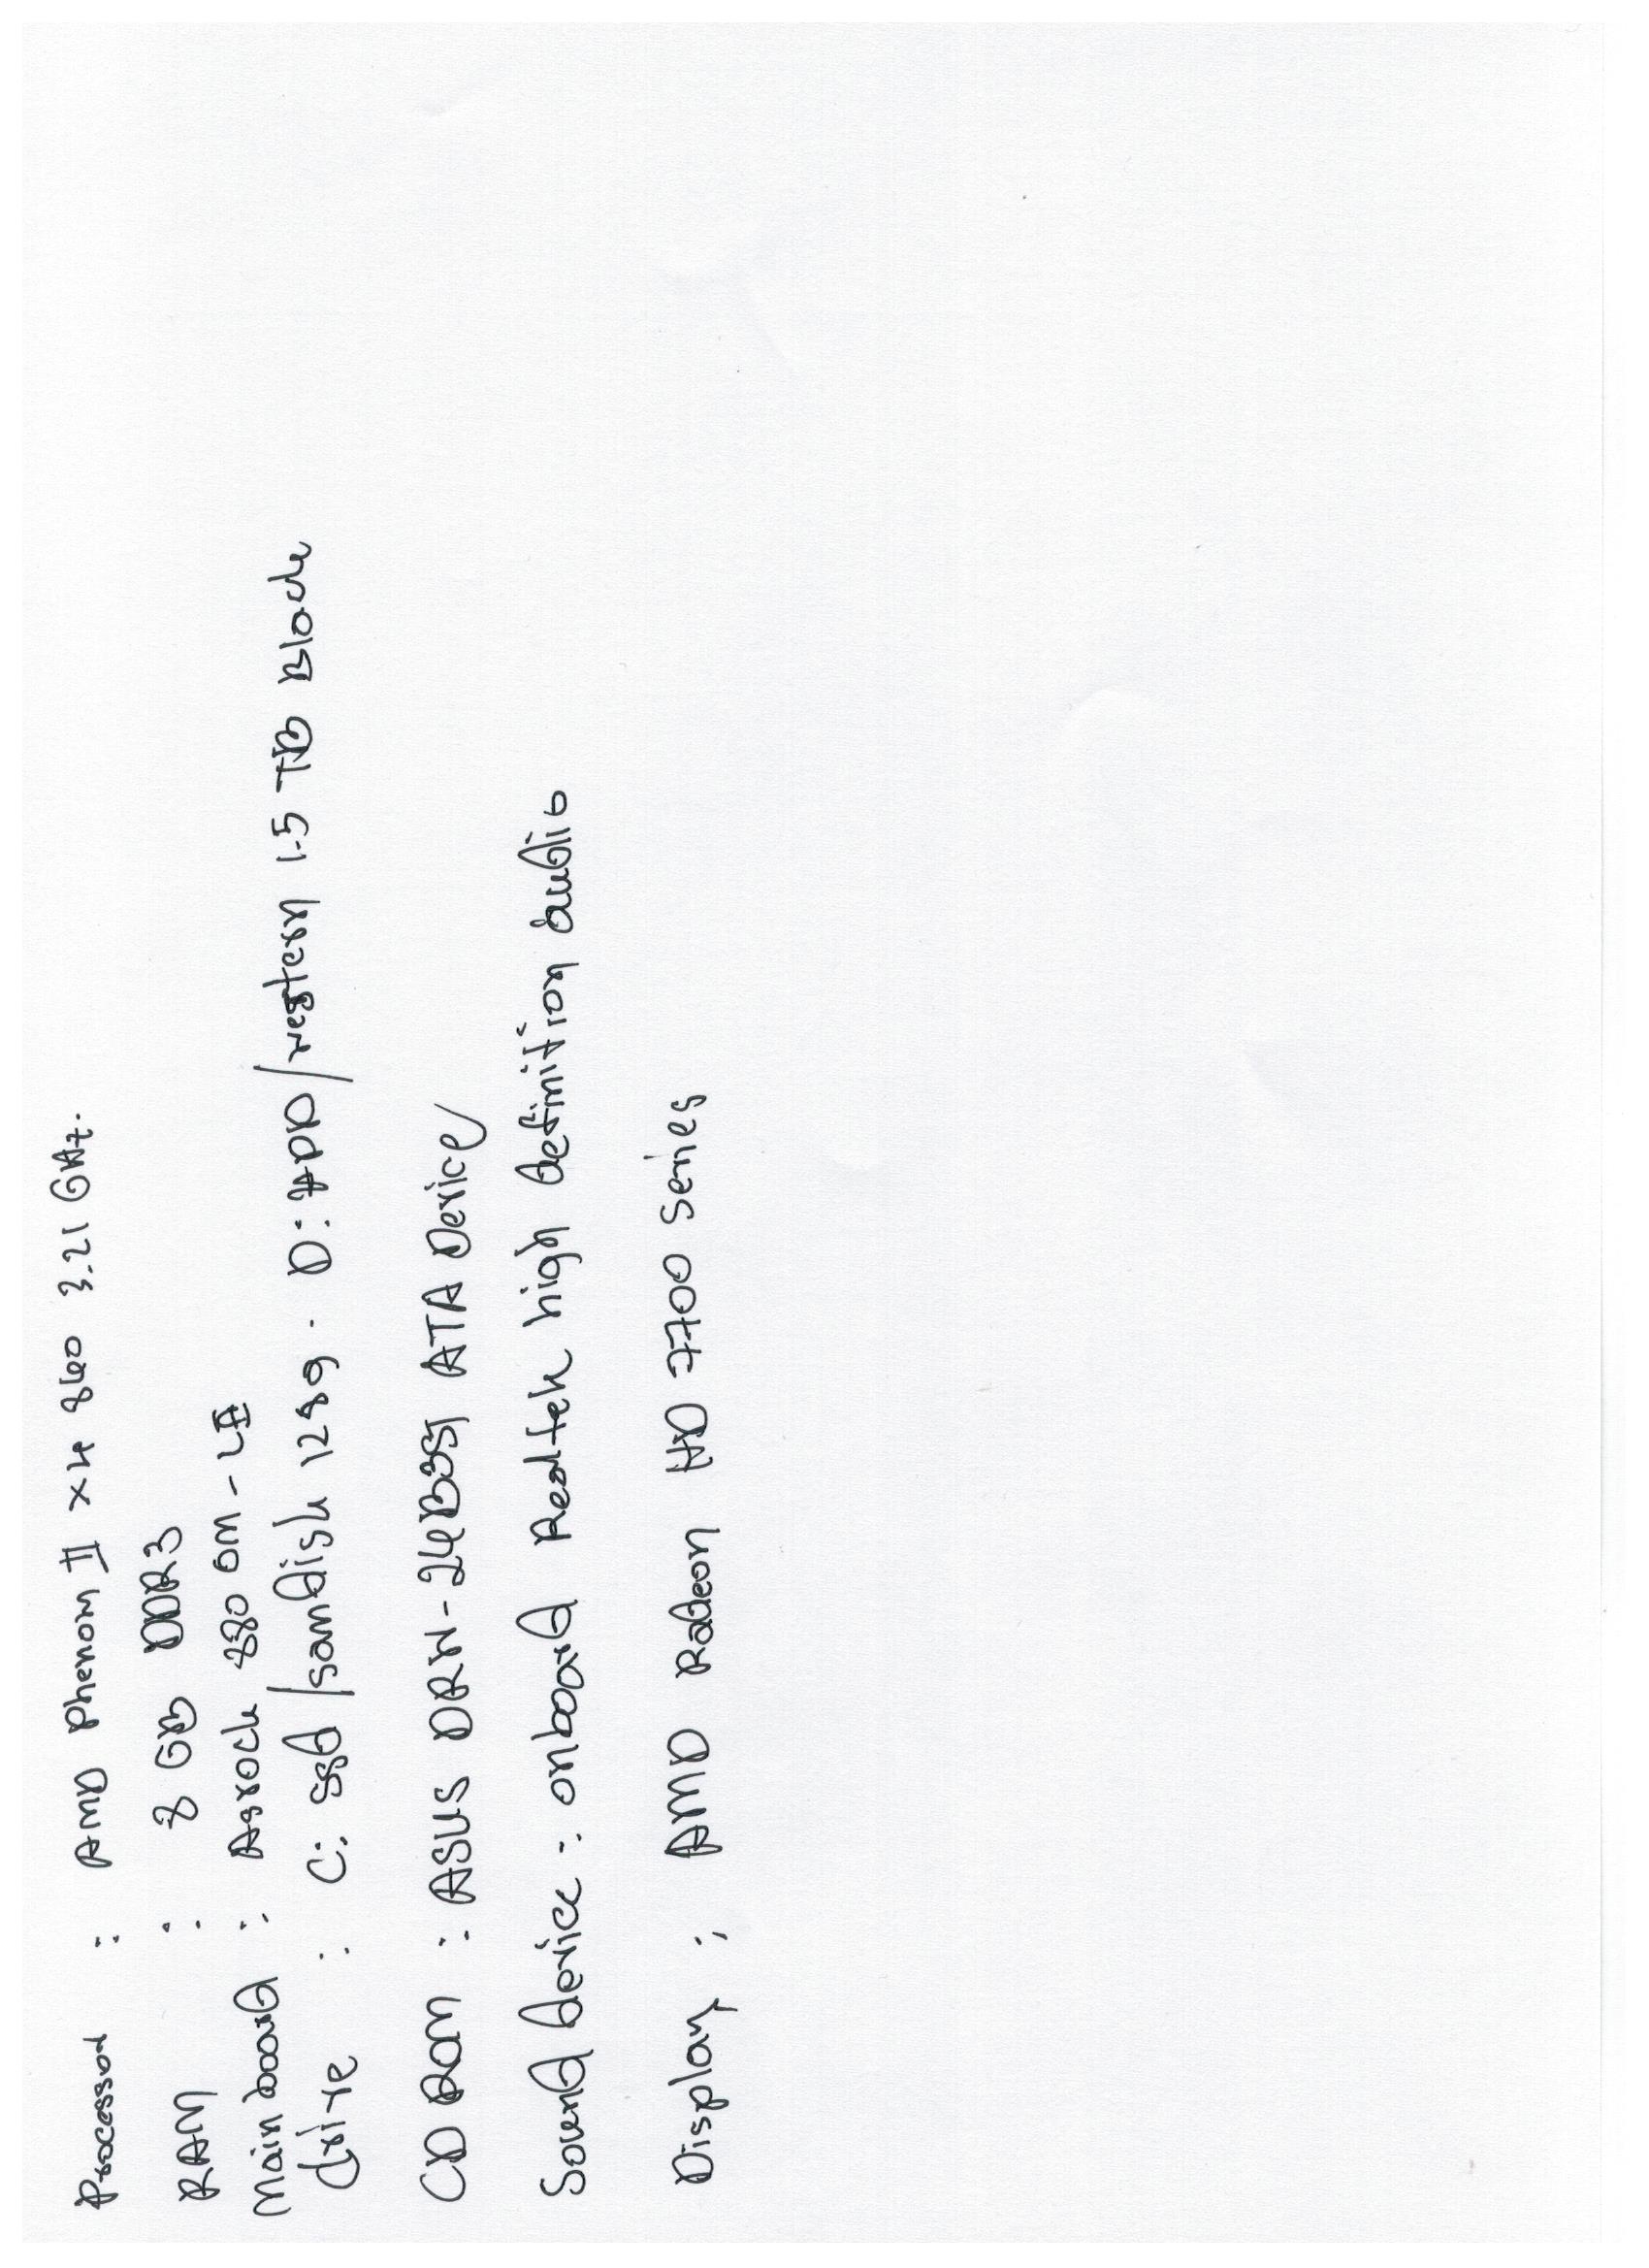 Processor : AMD Phenom II x4 840 3.21 GHz.
RAM : 8 GB DDR3
Main board : Asrock 880 GM-LE
drive : C: ssd/sandisk 128g. D: HDD/western 1.5 TB Black
CD ROM : ASUS DRW-24B3ST ATA Device
Sound device : onboard Realtek high definition audio
Display : AMD Radeon HD 7700 series